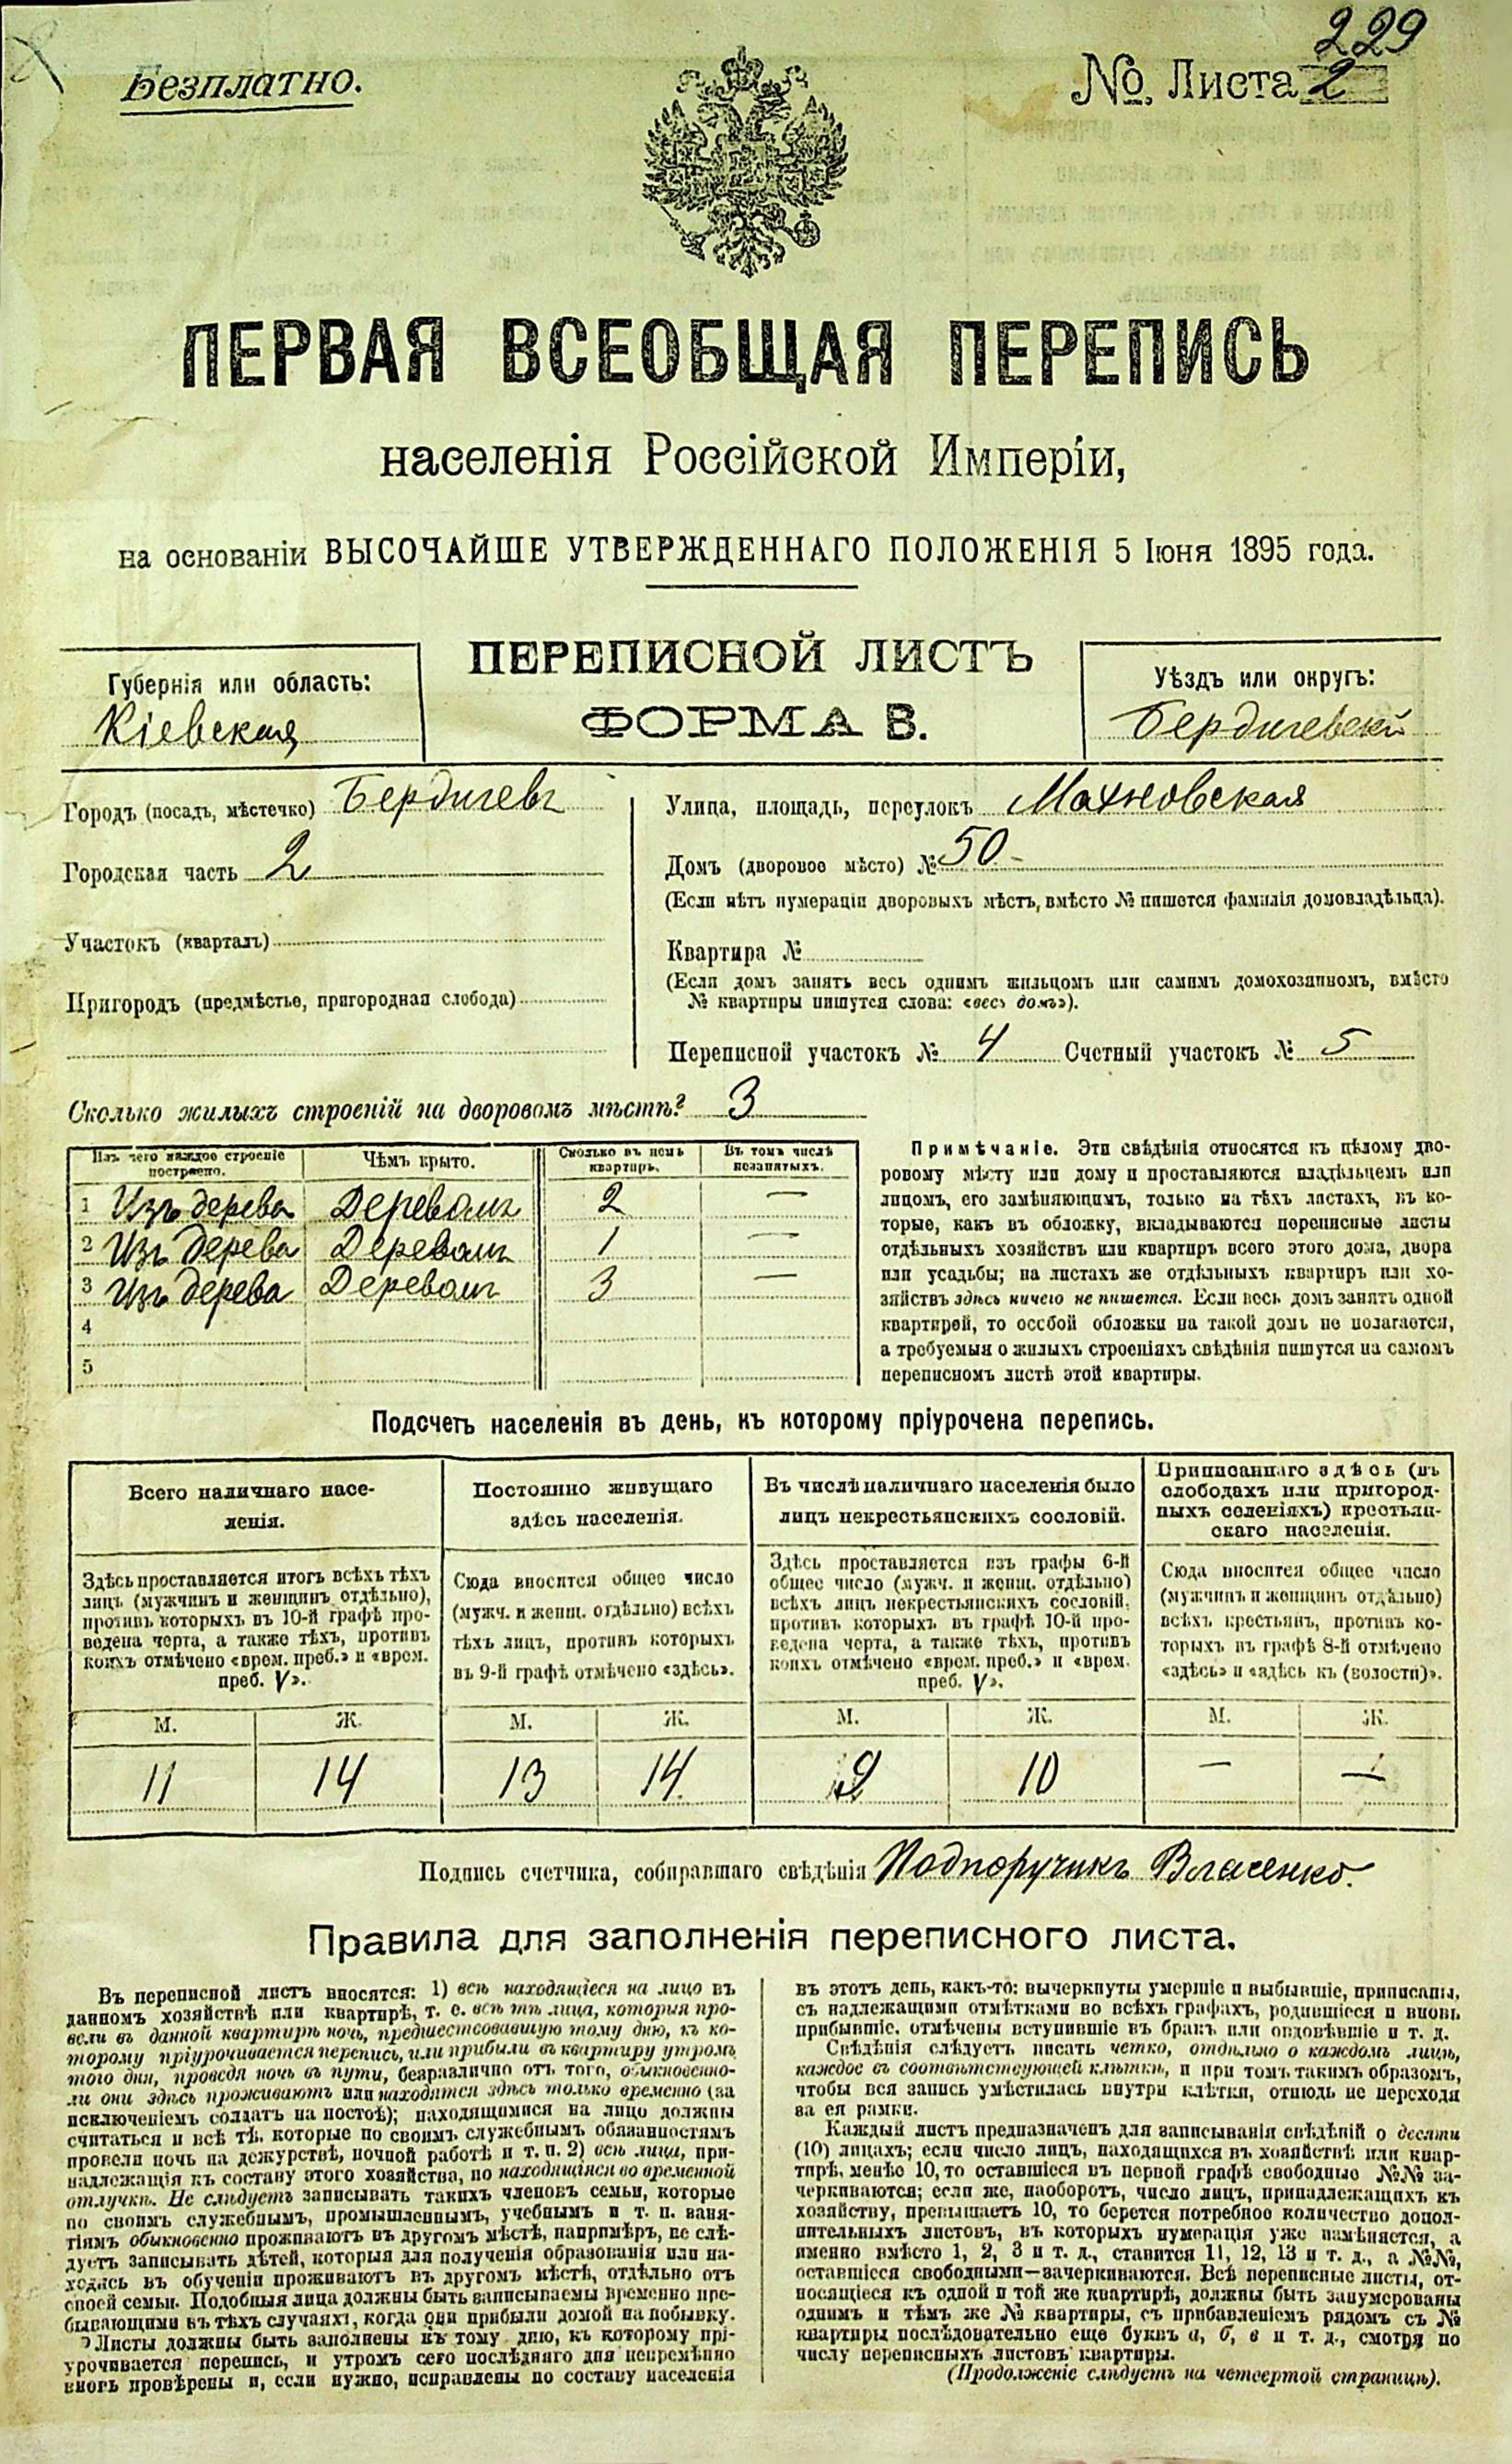 229
Безплатно.
№. Листа 2
ПЕРВАЯ ВСЕОБЩАЯ ПЕРЕПИСЬ
населенія Россійской Имперіи,
на основаніи ВЫСОЧАЙШЕ УТВЕРЖДЕННАГО ПОЛОЖЕНІЯ 5 Іюня 1895 года.
ПЕРЕПИСНОЙ ЛИСТЪ
ФОРМА В.
Губернія или область:
Кіевская
Уѣздъ или округъ:
Бердичевскій
Городъ (посадъ, мѣстечко) Бердичевъ
Городская часть 2
Участокъ (кварталъ)
Пригородъ (предмѣстье, пригородная слобода)
Улица, площадь, переулокъ Махновская
Домъ (дворовое мѣсто) № 50 -
(Если нѣтъ нумераціи дворовыхъ мѣстъ, вмѣсто № пишется фамилія домовладѣльца).
Квартира №
(Если домъ занятъ весь однимъ жильцомъ или самимъ домохозяиномъ, вмѣсто
№ квартиры пишутся слова: «весь домъ»).
Переписной участокъ № 4 Счетный участокъ № 5
Сколько жилыхъ строеній на дворовомъ мѣстѣ? 3
Изъ чего каждое строеніе построено. Чѣмъ крыто. Сколько въ немъ квартиръ. Въ томъ числѣ незанятыхъ.
1 Изъ дерева Деревомъ 2 —
2 Изъ дерева Деревомъ 1 —
3 Изъ дерева Деревомъ 3 —
4
5
Примѣчаніе. Эти свѣдѣнія относятся къ цѣлому дво-
ровому мѣсту или дому и проставляются владѣльцемъ или
лицомъ, его замѣняющимъ, только на тѣхъ листахъ, въ ко-
торые, какъ въ обложку, вкладываются переписные листы
отдѣльныхъ хозяйствъ или квартиръ всего этого дома, двора
или усадьбы; на листахъ же отдѣльныхъ квартиръ или хо-
зяйствъ здѣсь ничего не пишется. Если весь домъ занятъ одной
квартирей, то особой обложки на такой домъ не полагается,
а требуемыя о жилыхъ строеніяхъ свѣдѣнія пишутся на самомъ
переписномъ листѣ этой квартиры.
Подсчетъ населенія въ день, къ которому пріурочена перепись.
Всего наличнаго насе-
ленія.
Здѣсь проставляется итогъ всѣхъ тѣхъ
лицъ (мужчинъ и женщинъ отдѣльно),
противъ которыхъ въ 10-й графѣ про-
ведена черта, а также тѣхъ, противъ
коихъ отмѣчено «врем. преб.» и «врем.
преб. V».
Постоянно живущаго
здѣсь населенія.
Сюда вносится общее число
(мужч. и женщ. отдѣльно) всѣхъ
тѣхъ лицъ, противъ которыхъ
въ 9-й графѣ отмѣчено «здѣсь».
Въ числѣ наличнаго населенія было
лицъ некрестьянскихъ сословій.
Здѣсь проставляется изъ графы 6-й
общее число (мужч. и женщ. отдѣльно)
всѣхъ лицъ некрестьянскихъ сословій,
противъ которыхъ въ графѣ 10-й про-
ведена черта, а также тѣхъ, противъ
коихъ отмѣчено «врем. преб.» и «врем.
преб. V».
Приписаннаго здѣсь (въ
слободахъ или пригород-
ныхъ селеніяхъ) крестьян-
скаго населенія.
Сюда вносится общее число
(мужчинъ и женщинъ отдѣльно)
всѣхъ крестьянъ, противъ ко-
торыхъ въ графѣ 8-й отмѣчено
«здѣсь» и «здѣсь къ (волости)».
М. Ж. М. Ж. М. Ж. М. Ж.
11 14 13 14 10 — —
Подпись счетчика, собиравшаго свѣдѣнія Подпоручикъ
Правила для заполненія переписного листа.
Въ переписной листъ вносятся: 1) всѣ находящіеся на лицо въ
данномъ хозяйствѣ или квартирѣ, т. е. всѣ тѣ лица, которыя про-
вели въ данной квартирѣ ночь, предшествовавшую тому дню, къ ко-
торому пріурочивается перепись, или прибыли въ квартиру утромъ
того дня, проведя ночь въ пути, безразлично отъ того, обыкновенно-
ли они здѣсь проживаютъ или находятся здѣсь только временно (за
исключеніемъ солдатъ на постоѣ); находящимися на лицо должны
считаться и всѣ тѣ, которые по своимъ служебнымъ обязанностямъ
провели ночь на дежурствѣ, ночной работѣ и т. п. 2) всѣ лица, при-
надлежащія къ составу этого хозяйства, но находящіяся во временной
отлучкѣ. Не слѣдуетъ записывать такихъ членовъ семьи, которые
по своимъ служебнымъ, промышленнымъ, учебнымъ и т. п. заня-
тіямъ обыкновенно проживаютъ въ другомъ мѣстѣ, напримѣръ, не слѣ-
дуетъ записывать дѣтей, которыя для полученія образованія или на-
ходясь въ обученіи проживаютъ въ другомъ мѣстѣ, отдѣльно отъ
своей семьи. Подобныя лица должны быть записываемы временно пре-
бывающими въ тѣхъ случаяхъ, когда они прибыли домой на побывку.
Листы должны быть заполнены къ тому дню, къ которому прі-
урочивается перепись, и утромъ сего послѣдняго дня непремѣнно
вновь провѣрены и, если нужно, исправлены по составу населенія
въ этотъ день, какъ-то: вычеркнуты умершіе и выбывшіе, приписаны,
съ надлежащими отмѣтками во всѣхъ графахъ, родившіеся и вновь
прибывшіе, отмѣчены вступившіе въ бракъ или овдовѣвшіе и т. д.
Свѣдѣнія слѣдуетъ писать четко, отдѣльно о каждомъ лицѣ,
каждое въ соотвѣтствующей клѣткѣ, и при томъ такимъ образомъ,
чтобы вся запись умѣстилась внутри клѣтки, отнюдь не переходя
за ея рамки.
Каждый листъ предназначенъ для записыванія свѣдѣній о десяти
(10) лицахъ; если число лицъ, находящихся въ хозяйствѣ или квар-
тирѣ, менѣе 10, то оставшіеся въ первой графѣ свободные №№ за-
черкиваются; если же, наоборотъ, число лицъ, принадлежащихъ къ
хозяйству, превышаетъ 10, то берется потребное количество допол-
нительныхъ листовъ, въ которыхъ нумерація уже измѣняется, а
именно вмѣсто 1, 2, 3 и т. д., ставится 11, 12, 13 и т. д., а №№,
оставшіеся свободными—зачеркиваются. Всѣ переписные листы, от-
носящіеся къ одной и той же квартирѣ, должны быть занумерованы
однимъ и тѣмъ же № квартиры, съ прибавленіемъ рядомъ съ №
квартиры послѣдовательно еще буквъ а, б, в и т. д., смотря по
числу переписныхъ листовъ квартиры.
(Продолженіе слѣдуетъ на четвертой страницѣ).